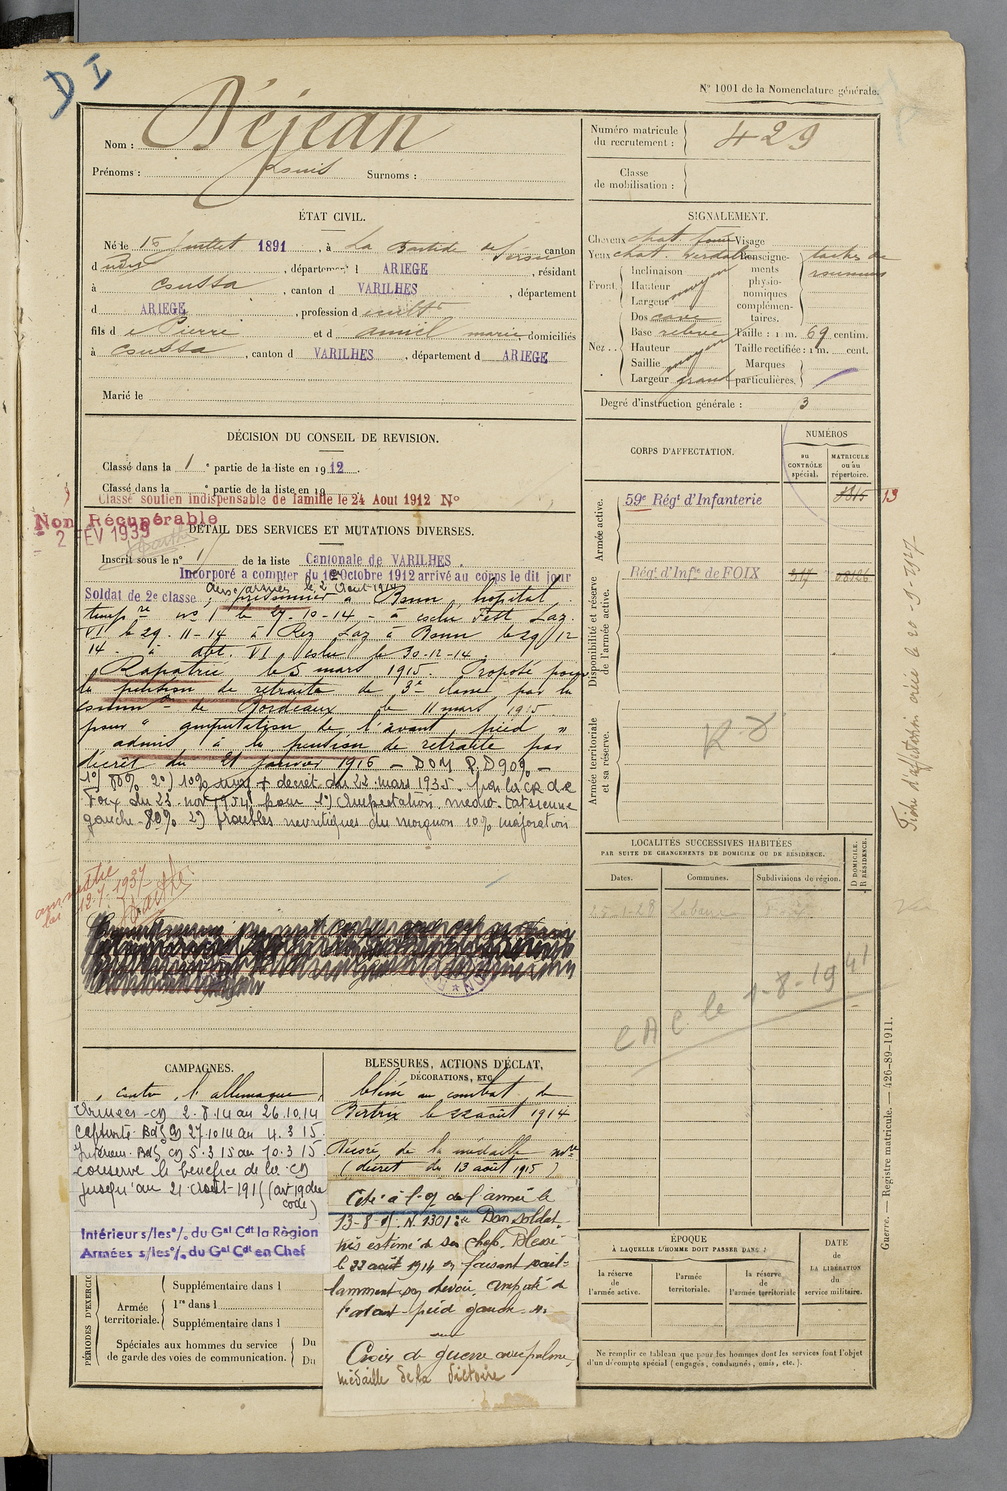 D I
N° 1001 de la Nomenclature générale.
Nom : Déjean
Prénoms : Louis Surnoms :
Numéro matricule du recrutement : 429
Classe de mobilisation :
ÉTAT CIVIL.
Né le 15 Juillet 1891, à La Bastide de canton
d , département d ARIEGE, résidant
à Coussa, canton d VARILHES, département
d ARIEGE, profession d cultr
fils d e Pierre et d Amiel Marie, domiciliés
à Coussa, canton d VARILHES, département d ARIEGE
Marié le
SIGNALEMENT.
Cheveux chat. foncé Visage
Yeux chat. verdâtre Renseignements physionomiques complémentaires. taches de rousseurs
Front. Inclinaison
Hauteur moyen
Largeur
Nez .. Dos cave
Base relevé Taille : 1 m. 69 centim.
Hauteur moyen Taille rectifiée : 1 m. cent.
Saillie Marques
Largeur grand particulières.
Degré d'instruction générale : 3
DÉCISION DU CONSEIL DE REVISION.
Classé dans la 1e partie de la liste en 1912.
Classé dans la e partie de la liste en 19
Classé soutien indispensable de famille le 24 Aout 1912 N°
Non Récupérable
2 FEV 1939
DÉTAIL DES SERVICES ET MUTATIONS DIVERSES.
Inscrit sous le n° 1 de la liste Cantonale de VARILHES.
Incorporé a compter du 10 Octobre 1912 arrivé au corps le dit jour
Soldat de 2e classe, aux armées le 2 Aout 1914
prisonnier à Bonn, hopital
tempre n° 1 le 27-10-14 - à Fest. Laz.
VI le 29-11-14 à Res Laz à Bonn le 29/12
14 - à abt. VI le 30-12-14
Rapatrié le 5 mars 1915 Proposé pour
la pension de retraite de 3e classe par la
common de Bordeaux le 11 mars 1915
pour " amputation de l'avant pied "
admis à la pension de retraite par
décret du 21 janvier 1916 - DOM P.D 90% -
1°) 80% 2°) 10% + décret du 22 mars 1935. par la CR de
Foix du 23 nov 1954 pour 1°) Amputation medio-tarsienne
gauche 80% 2°) troubles nevritiques du moignon 10% majoration
amnistie
loi 12.7.1937
CORPS D'AFFECTATION.
NUMÉROS
au CONTRÔLE spécial.
MATRICULE ou au répertoire.
Armée active.
59e Régt d'Infanterie
13
Disponibilité et réserve de l'armée active.
Régt d'Infie de FOIX 317
Armée territoriale et sa réserve.
R D
LOCALITÉS SUCCESSIVES HABITÉES
PAR SUITE DE CHANGEMENTS DE DOMICILE OU DE RÉSIDENCE.
Dates. Communes. Subdivisions de région. D DOMICILE. R RÉSIDENCE.
CAC le 1-8-1941
Fiche d'affectation créée le 20-9-1927
Guerre. — Registre matricule. — 426-89-1911.
CAMPAGNES.
contre l'allemagne
Armées - CD 2.8.14 au 26.10.14
Captivité. 27.10.14 au 4.3.15.
Intérieur. CD 5.3.15 au 10.3.15
conserve le bénéfice de la CD
jusqu'au 21 Aout 191 (art 19 du
code)
Intérieur s/les o/. du Gal Cdt la Région
Armées s/les o/. du Gal Cdt en Chef
PÉRIODES D'EXERCICES
Supplémentaire dans l
Armée territoriale. 1re dans l
Supplémentaire dans l
Spéciales aux hommes du service de garde des voies de communication. Du
Du
BLESSURES, ACTIONS D'ÉCLAT,
DÉCORATIONS, ETC.
blessé au combat de
Bertrix le 22 août 1914
Décoré de la médaille mre
(décret du 13 août 1915)
Cité à l'O/ de l'armée le
13-8-15. N° 1301 : " Bon soldat
très estimé de ses chefs. Blessé
le 22 août 1914 en faisant vail-
lamment son devoir. Amputé de
l'avant-pied gauche. "
Croix de guerre avec palme,
médaille de la Victoire
ÉPOQUE
À LAQUELLE L'HOMME DOIT PASSER DANS :
la réserve de l'armée active.
l'armée territoriale.
la réserve de l'armée territoriale
DATE DE LA LIBÉRATION du service militaire.
Ne remplir ce tableau que pour les hommes dont les services font l'objet
d'un décompte spécial (engagés, condamnés, omis, etc.).